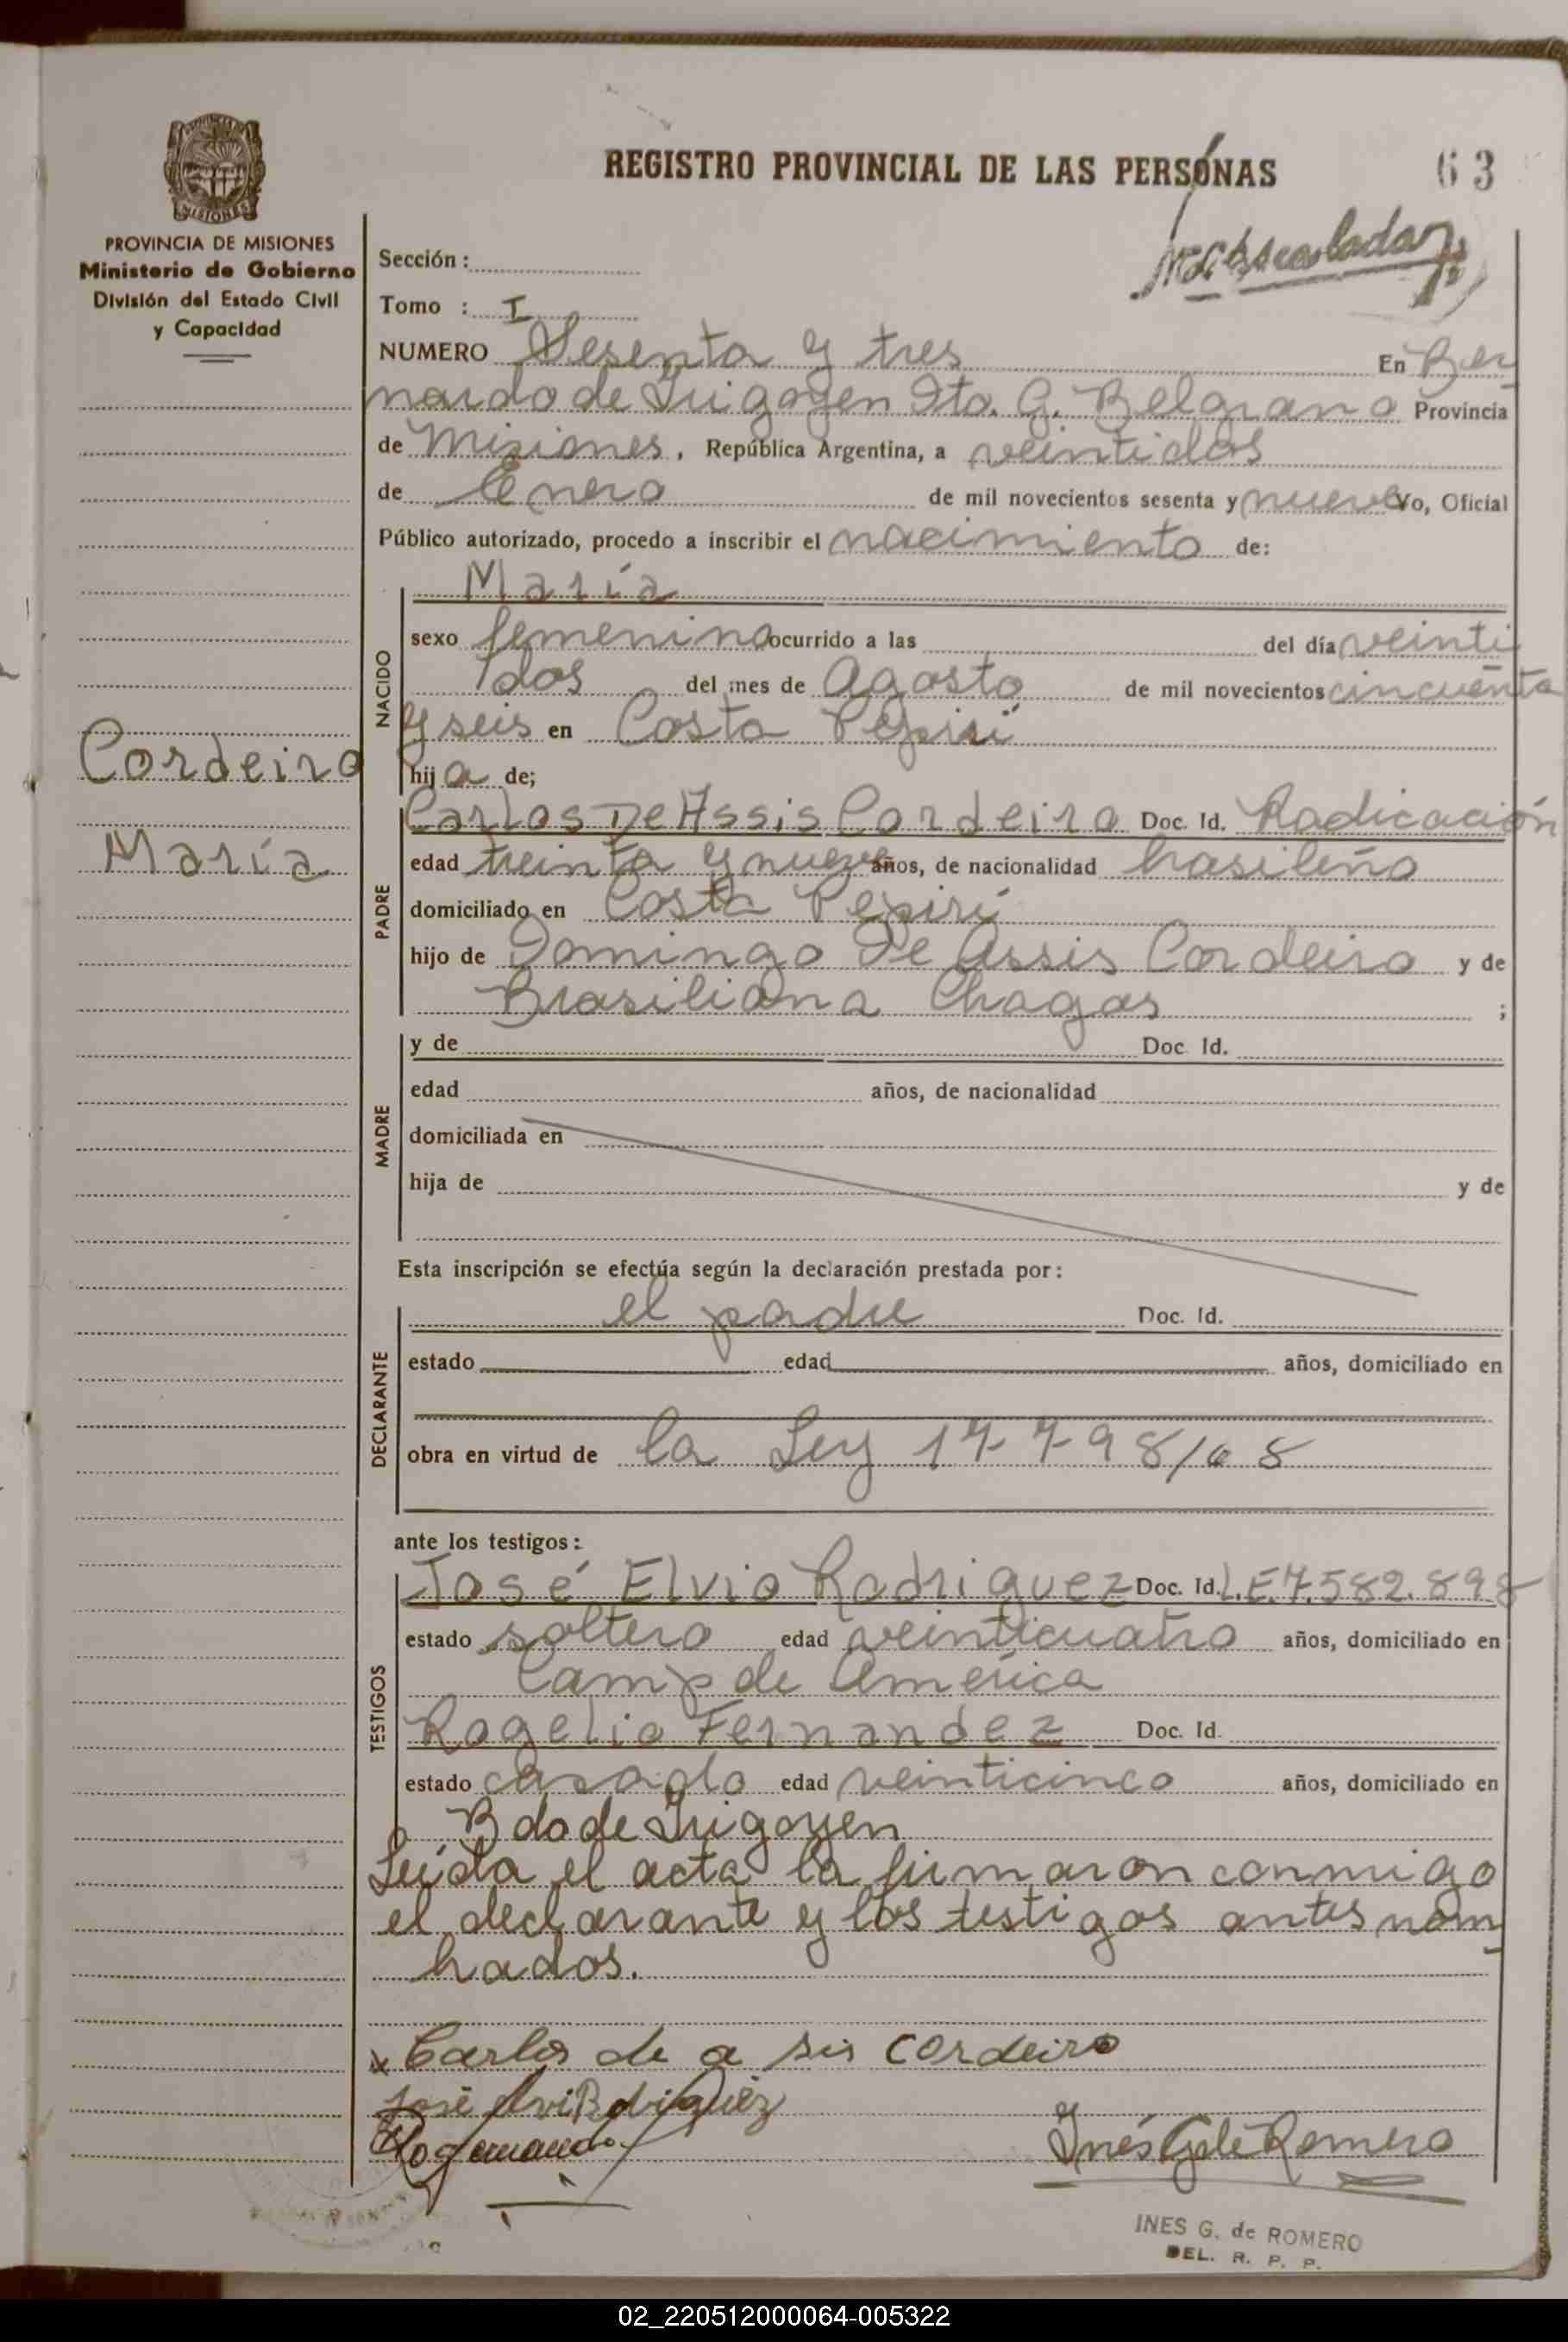 REGISTRO PROVINCIAL DE LAS PERSONAS
63
PROVINCIA DE MISIONES
Ministerio de Gobierno
División del Estado Civil
y Capacidad
Sección:
Tomo : I
NUMERO Sesenta y tres En Ber
nardo de Irigoyen Dto. G. Belgrano Provincia
de Misiones, República Argentina, a veintidos
de Enero de mil novecientos sesenta y nueve Yo, Oficial
Público autorizado, procedo a inscribir el nacimiento de:
María
NACIDO
sexo femenino ocurrido a las del día veinti
dos del mes de Agosto de mil novecientos cincuenta
y seis en Costa Pepirí
Cordeiro
María
hija de;
PADRE
Carlos De Assis Cordeiro Doc. Id. Radicación
edad treinta y nueve años, de nacionalidad brasileño
domiciliado en Costa Pepirí
hijo de Domingo De Assis Cordeiro y de
Brasiliana Chagas ;
MADRE
y de Doc. Id.
edad años, de nacionalidad
domiciliada en
hija de y de
Esta inscripción se efectúa según la declaración prestada por:
DECLARANTE
el padre Doc. Id.
estado edad años, domiciliado en
obra en virtud de la Ley 17798/68
ante los testigos:
TESTIGOS
José Elvio Rodriguez Doc. Id. L.E.7.582.898
estado soltero edad veinticuatro años, domiciliado en
Camp de América
Rogelio Fernandez Doc. Id.
estado casado edad veinticinco años, domiciliado en
Bdo de Irigoyen
Leída el acta la firmaron conmigo
el declarante y los testigos antes nom
brados.
x Carlos de a sis cordeiro
José
Inés G de Romero
INES G. de ROMERO
DEL. R. P. P.
02_220512000064-005322